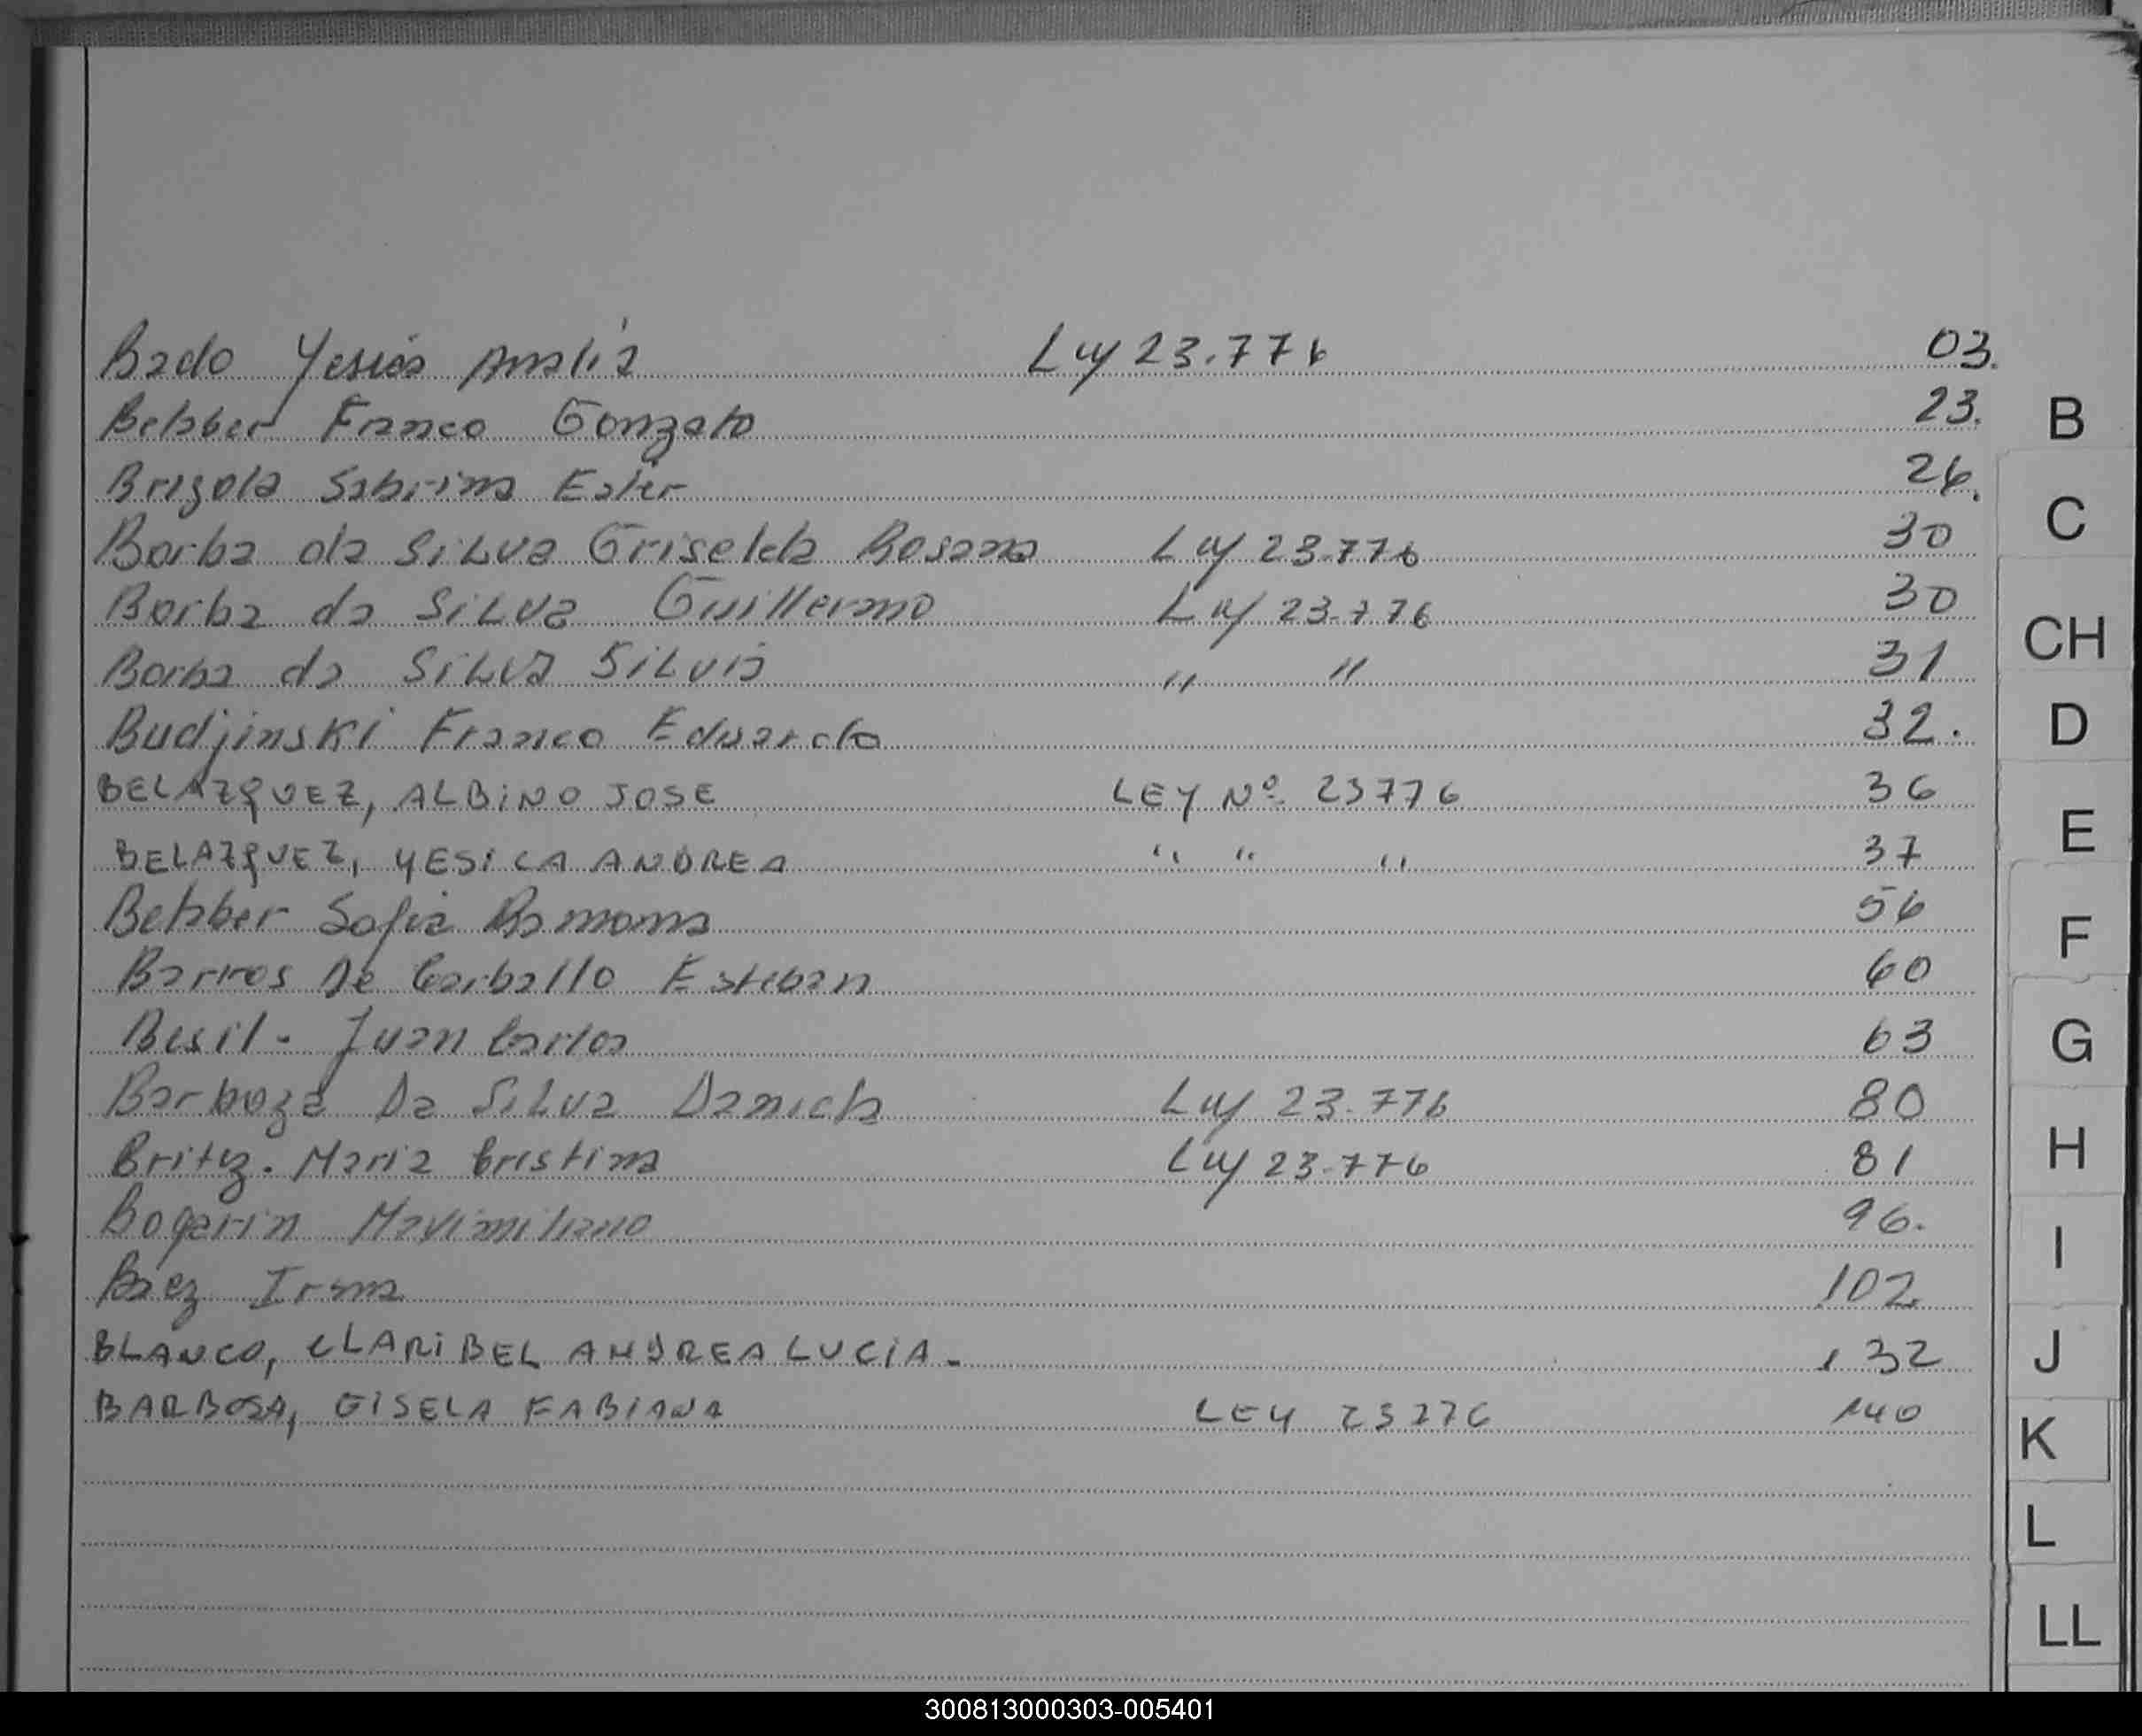 Bado Yesica Analia Ley 23.776 03.
Franco Gonzalo 23.
Brizola Sabrina Ester 26.
Borba da Silva Griselda Rosana Ley 23.776 30
Borba da Silva Guillermo Ley 23.776 30
Borba da Silva Silvia " " 31
Budjinski Franco Eduardo 32.
BELAZQUEZ, ALBINO JOSE LEY Nº 23776 36
BELAZQUEZ, YESICA ANDREA " " " 37
Sofia Ramona 56
Barros De Carballo Esteban 60
Besil - Juan Carlos 63
Barboza Da Silva Daniela Ley 23.776 80
Britez. Maria Cristina Ley 23.776 81
Bogarin Maximiliano 96.
Baez Irma 102.
BLANCO, CLARIBEL ANDREA LUCIA - 132
BARBOSA, GISELA FABIANA LEY 23776 140
B
C
CH
D
E
F
G
H
I
J
K
L
LL
300813000303-005401